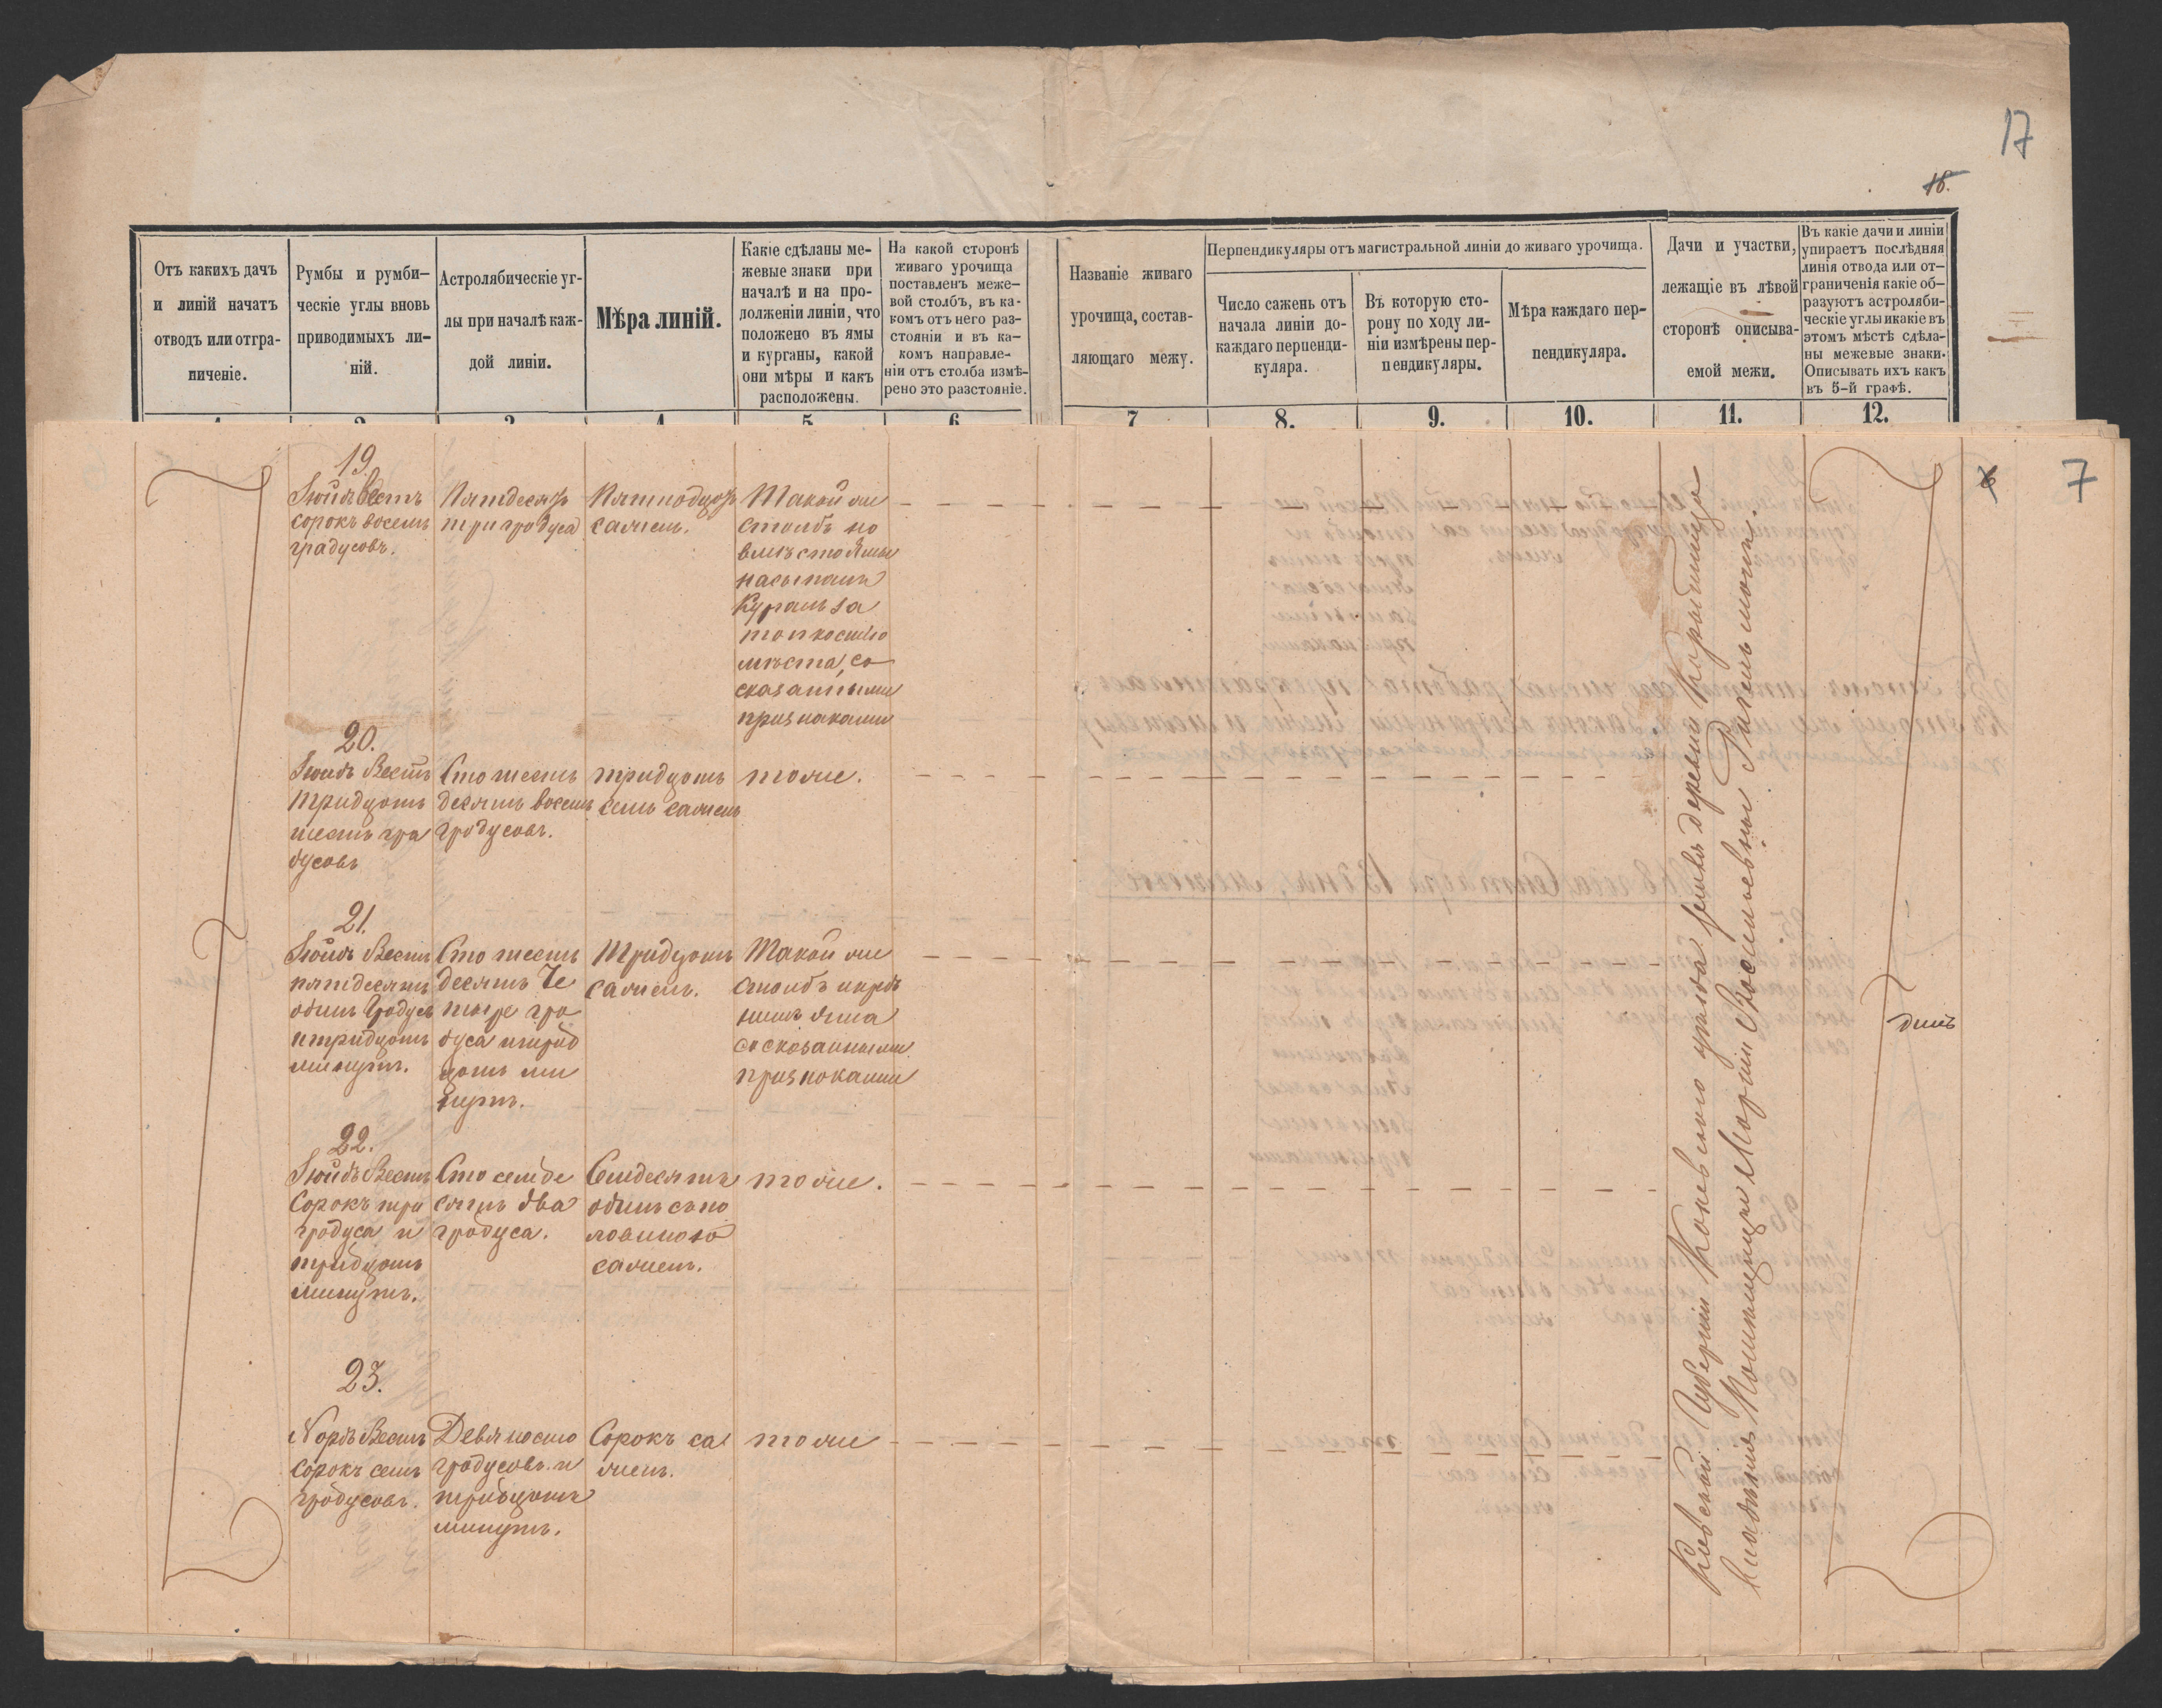 17
18.
Отъ какихъ дачъ
и линій начатъ
отводъ или отгра-
ниченіе.
Румбы и румби-
ческіе углы вновь
приводимыхъ ли-
ній.
Астролябическіе уг-
лы при началѣ каж-
дой линіи.
Мѣра линій.
Какіе сдѣланы ме-
жевые знаки при
началѣ и на про-
долженіи линіи, что
положено въ ямы
и курганы, какой
они мѣры и какъ
расположены.
На какой сторонѣ
живаго урочища
поставленъ меже-
вой столбъ, въ ка-
комъ отъ него раз-
стояніи и въ ка-
комъ направле-
ніи отъ столба измѣ-
рено это разстояніе.
Названіе живаго
урочища, состав-
ляющаго межу.
Перпендикуляры отъ магистральной линіи до живаго урочища.
Число сажень отъ
начала линіи до-
каждаго перпенди-
куляра.
Въ которую сто-
рону по ходу ли-
ніи измѣрены пер-
пендикуляры.
Мѣра каждаго пер-
пендикуляра.
Дачи и участки,
лежащіе въ лѣвой
сторонѣ описыва-
емой межи.
Въ какіе дачи и линіи
упираетъ послѣдняя
линія отвода или от-
граниченія какіе об-
разуютъ астроляби-
ческіе углы и какіе въ
этомъ мѣстѣ сдѣла-
ны межевые знаки.
Описывать ихъ какъ
въ 5-й графѣ.
7
8.
9.
10.
11.
12.
7
19.
Зюйдъ Вестъ
сорокъ восемь
градусовъ.
Пятдесятъ
три градуса
Пятнодцать
сажень.
Такой же
столбъ но
вмѣсто Ямы
насыпанъ
Курганъ за
топкостію
мѣста, со
сказанными
признаками
20.
Зюйдъ Вестъ
тридцать
шесть гра
дусовъ
Сто шесть
десятъ восемь
градусовъ.
тридцать
семь сажень
тоже.
21.
Зюйдъ Вестъ
пятдесятъ
одинъ градусъ
и тридцать
минутъ.
Сто шесть
десятъ Че
тыре гра
дуса и трид
цать ми
нутъ.
Тридцать
сажень.
Такой же
столбъ и предъ
нимъ Яма
со сказанными
признаками
22.
Зюйдъ Вестъ
Сорокъ три
градуса и
тридцать
минутъ.
Сто семде
сятъ два
градуса.
Семдесятъ
одинъ съ по
ловиною
сажень.
тоже.
23.
Nордъ Вестъ
Сорокъ семь
градусовъ.
Девяносто
градусовъ и
тридцать
минутъ.
Сорокъ са
жень.
тоже
Кіевской Губерніи Каневскаго уѣзда земля деревни
владѣнія Помѣщицы Маріи Васильевны